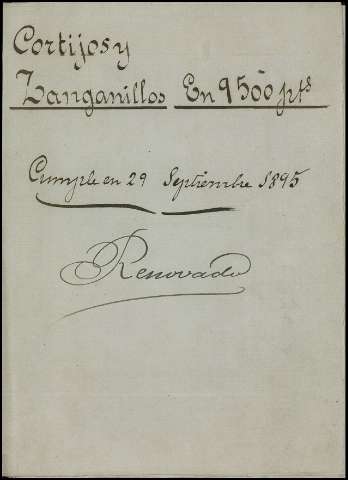 Cortijos y
Zanganillos En 9500 pts
Cumple en 29 Septiembre 1895
Renovado